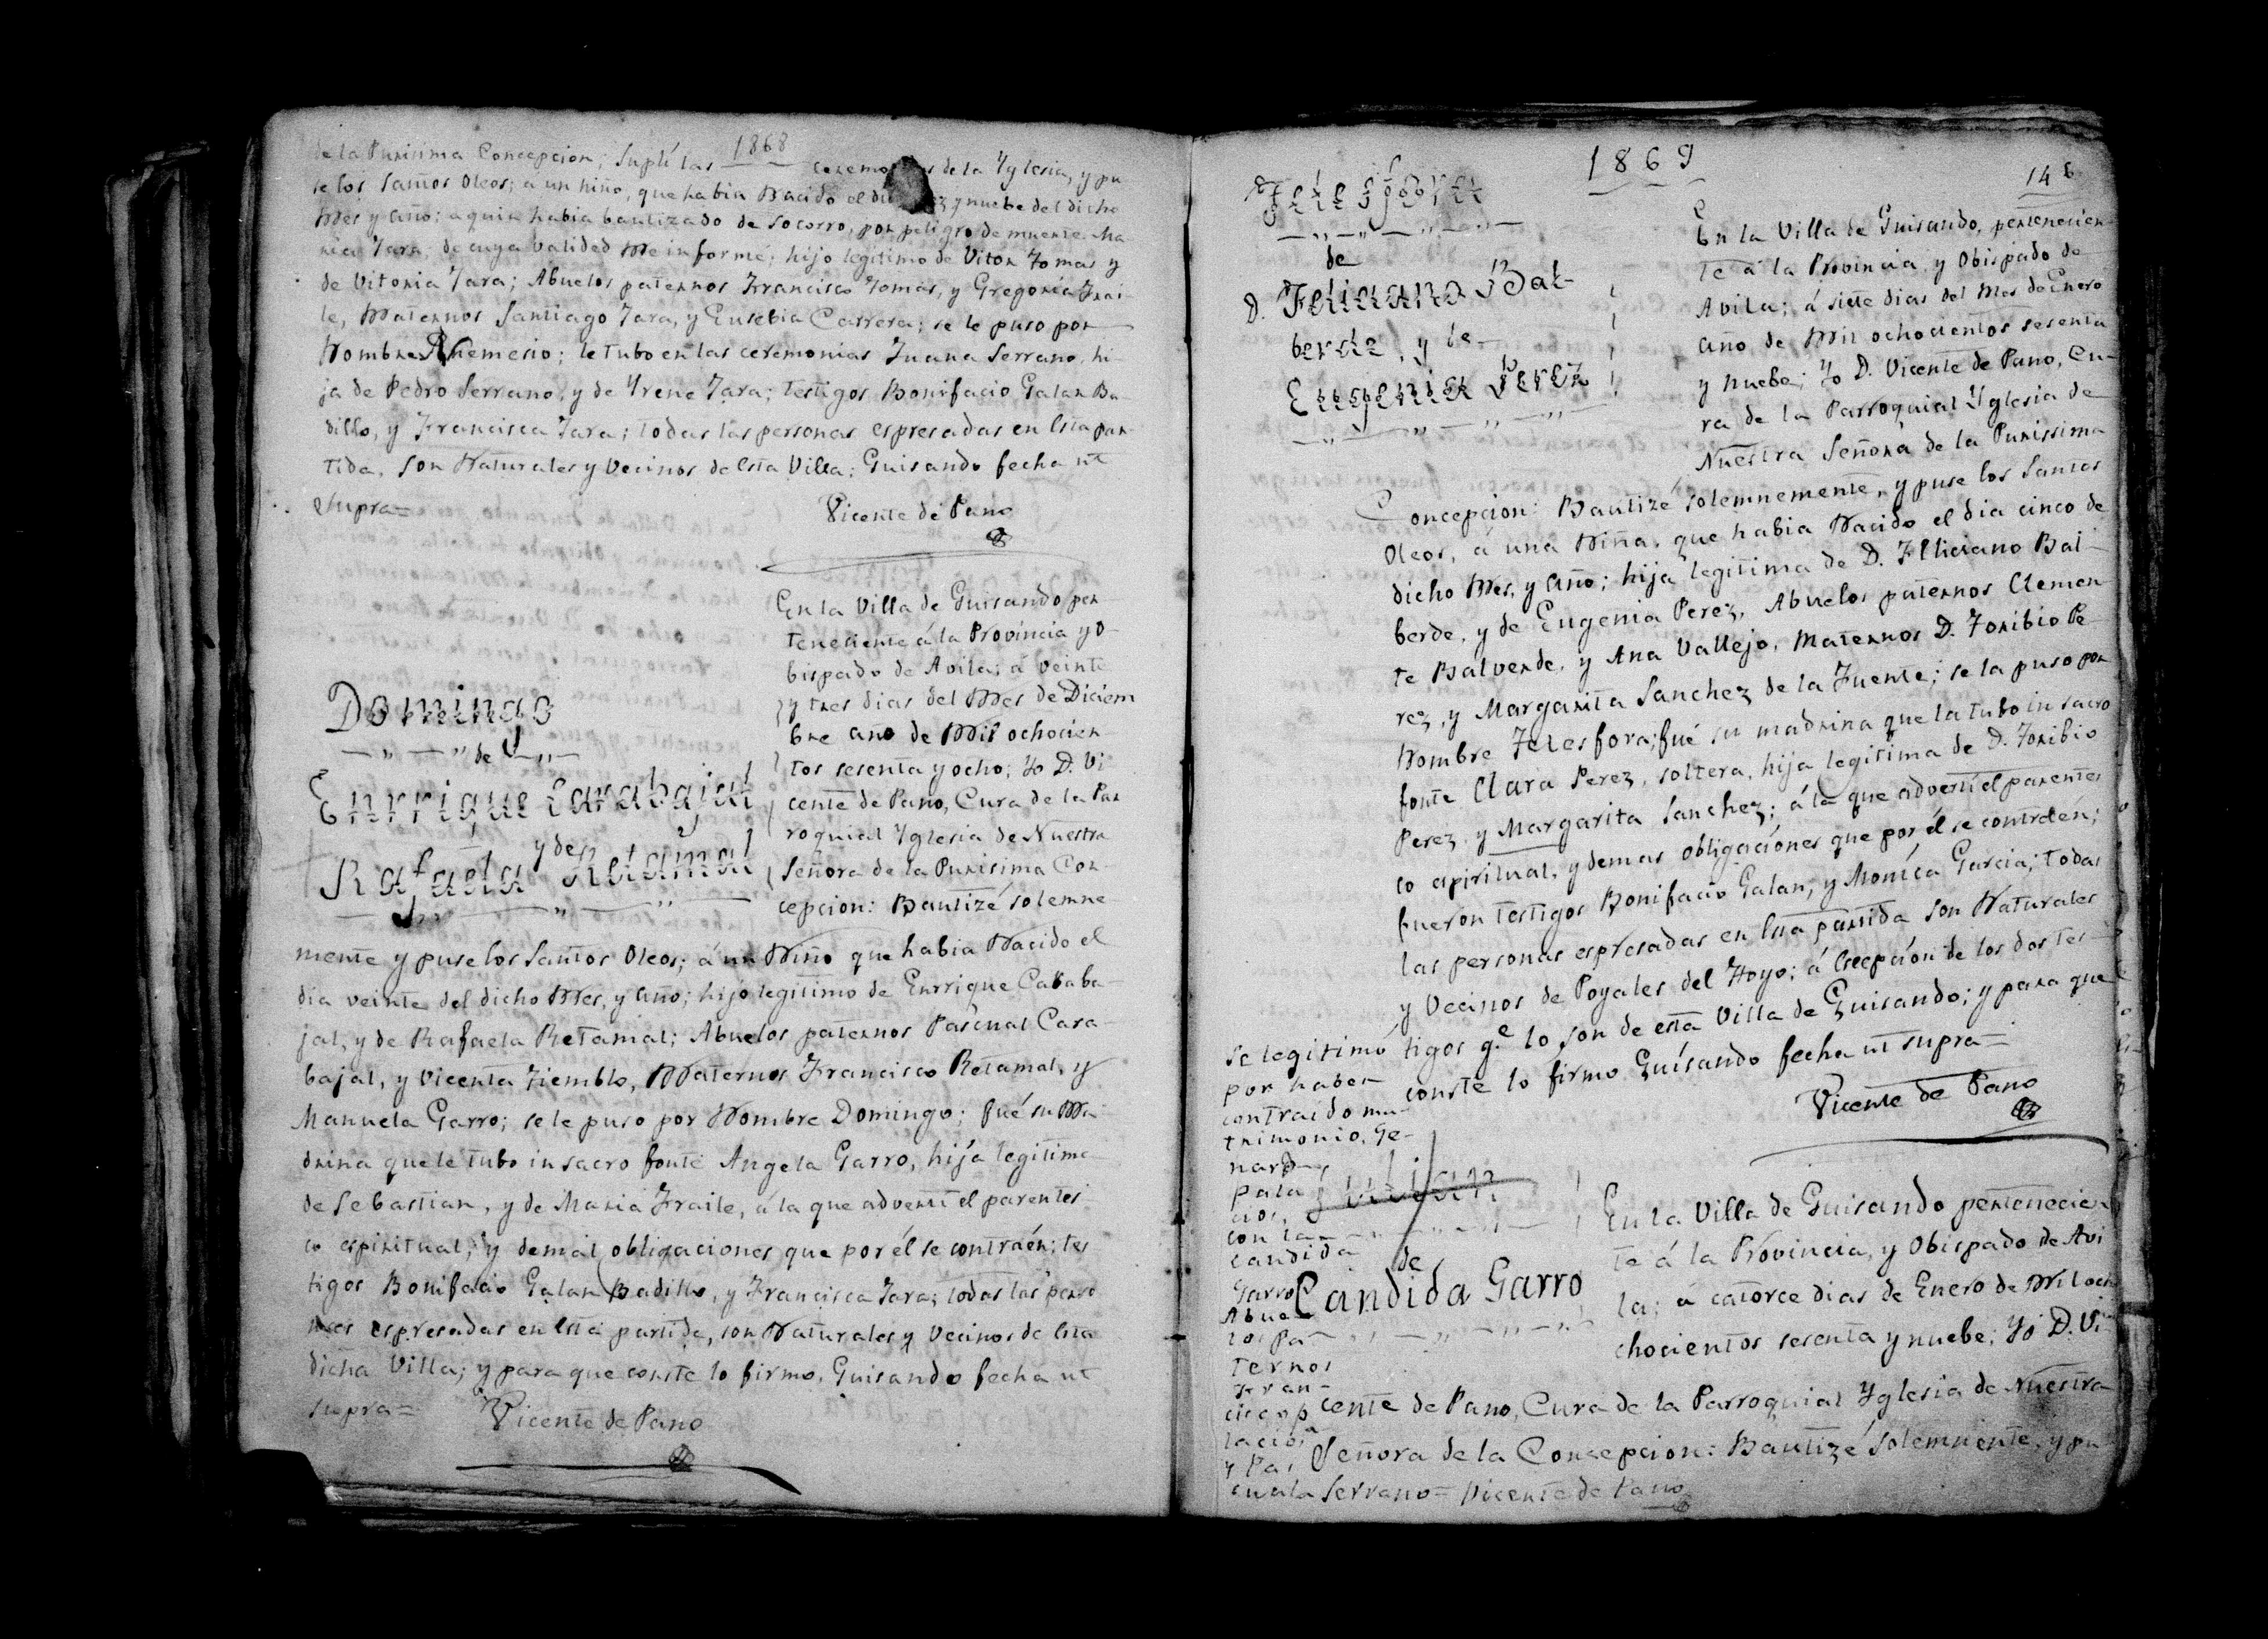 1868
de la Purisima Concepcion; Suplí las ceremo s de la Yglesia, y pu
se los Santos Oleos; a un niño, que habia Nacido el di ez y nuebe del dicho
Mes y año; a quien habia bautizado de Socorro, por peligro de muerte. Ma
ria Jara, de cuya valided me informé; hijo legitimo de Vitor Tomas y
de Vitoria Jara; Abuelos paternos Francisco Tomas, y Gregoria Frai-
le, Maternos Santiago Jara, y Eusebia Carrera; se le puso por
Nombre Nemesio; le tubo en las ceremonias Juana Serrano, hi-
ja de Pedro Serrano, y de Yrene Jara; testigos Bonifacio Galan Ba
dillo, y Francisca Jara; todas las personas espresadas en esta par-
tida, son Naturales y Vecinos de esta Villa; Guisando fecha ut
supra=
Vicente de Pano
Domingo
de
Enrrique Carabajal
y de
Rafaela Retamal
En la Villa de Guisando per
teneciente á la Provincia y O-
bispado de Avila; á veinte
y tres dias del Mes de Diciem
bre año de Mil ochocien-
tos sesenta y ocho; Yo D. Vi
cente de Pano, Cura de la Par
roquial Yglesia de Nuestra
Señora de la Purisima Con
cepcion: Bautizé solemne
mente y puse los Santos Oleos; á un Niño que habia Nacido el
dia veinte del dicho Mes, y año; hijo legitimo de Enrrique Cababa-
jal, y de Rafaela Retamal; Abuelos paternos Pascual Cara-
bajal, y Vicenta Tiemblo, Maternos Francisco Retamal, y
Manuela Garro; se le puso por Nombre Domingo; fué su Ma-
drina que le tubo in sacro fonte Angela Garro, hija legitima
de Sebastian, y de Maria Fraile, á la que advertí el parentes-
co espiritual, y demas obligaciones que por él se contraén; tes
tigos Bonifacio Galan Badillo, y Francisca Jara; todas las perso
nas espresadas en esta partida, son Naturales y Vecinos de esta
dicha Villa; y para que conste lo firmo. Guisando fecha ut
supra=
Vicente de Pano
1869
146
Telesfora
de
D. Feliciano Bal-
berde, y de
Eugenia Perez
En la Villa de Guisando, pertenecien
te á la Provincia, y Obispado de
Avila; á siete dias del Mes de Enero
año de Mil ochocientos sesenta
y nuebe; Yo D. Vicente de Pano, Cu-
ra de la Parroquial Yglesia de
Nuestra Señora de la Purissima
Concepcion: Bautizé solemnemente, y puse los Santos
Oleos, á una Niña, que habia Nacido el dia cinco de
dicho Mes, y año; hija legitima de D. Feliciano Bal-
berde, y de Eugenia Perez, Abuelos paternos Clemen
te Balverde, y Ana Vallejo, Maternos D. Toribio Pe-
rez, y Margarita Sanchez de la Fuente; se la puso por
Nombre Telesfora; fué su madrina que la tubo in sacro
fonte Clara Perez, soltera, hija legitima de D. Toribio
Perez, y Margarita Sanchez; á la que advertí el parentes
co espiritual, y demas obligaciones que por él se contraén;
fueron testigos Bonifacio Galan, y Monica Garcia; todas
las personas espresadas en esta partida son Naturales
y Vecinos de Poyales del Hoyo; á escepción de los dos tes-
tigos q.e lo son de esta Villa de Guisando; y para que
conste lo firmo Guisando fecha ut supra=
Vicente de Pano
Se legitimó
por haber
contraido ma-
trimonio, Ge-
naro
Pala
cios,
con la
candida
Garro
Abue
los Pa
ternos
Fran-
cisco P
lacios
y Pas
cuala Serrano= Vicente de Pano
Julian
de
Candida Garro
En la Villa de Guisando pertenecien
te á la Provincia, y Obispado de Avi
la; á catorce dias de Enero de Mil och
chocientos sesenta y nuebe; Yo D. Vi-
cente de Pano, Cura de la Parroquial Yglesia de Nuestra
Señora de la Concepcion: Bautizé solemnente, y pu-